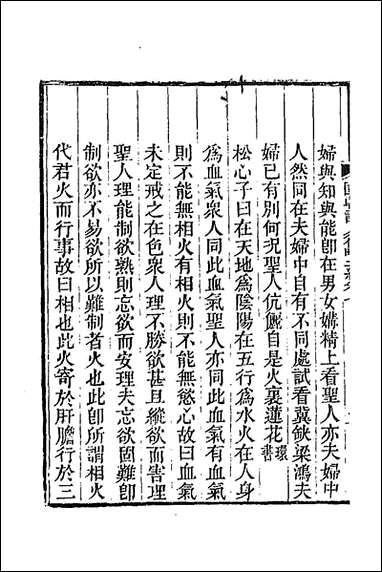 婦與知與能卽在男女媾精上看聖人亦夫婦中
人然同在夫婦中自有不同處試看冀缺梁鴻夫
婦已有別何況聖人伉儷自是火裏蓮花環書
松心子曰在天地爲陰陽在五行爲水火在人身
爲血氣衆人同此血氣聖人亦同此血氣有血氣
則不能無相火有相火則不能無慾心故曰血氣
未定戒之在色衆人理不勝欲甚且縱欲而害理
聖人理能制欲熟則忘欲而安理夫忘欲固難卽
制欲亦不易欲所以難制者火也此卽所謂相火
代君火而行事故曰相也此火寄於肝膽行於三